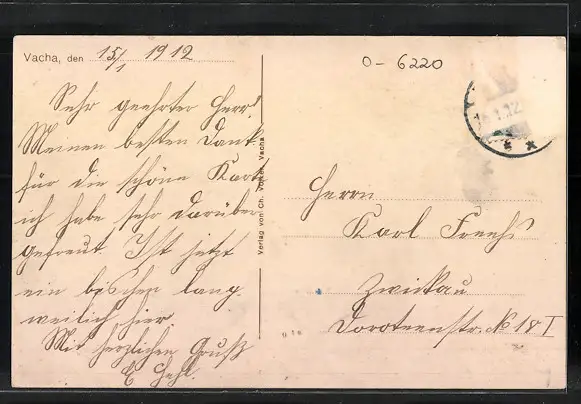 Vacha, den 15/1 1912
Sehr geehrter Herr!
Meinen besten Dank
für die schöne Karte
ich habe sehr darüber
gefreut. Ist jetzt
ein bischen lang-
weilich hier.
Mit herzlichen Gruß
E.
Verlag von Ch. Vacha
0-6220
1.12
Herrn
Karl
Zwickau
Doroteenstr. № 18 I